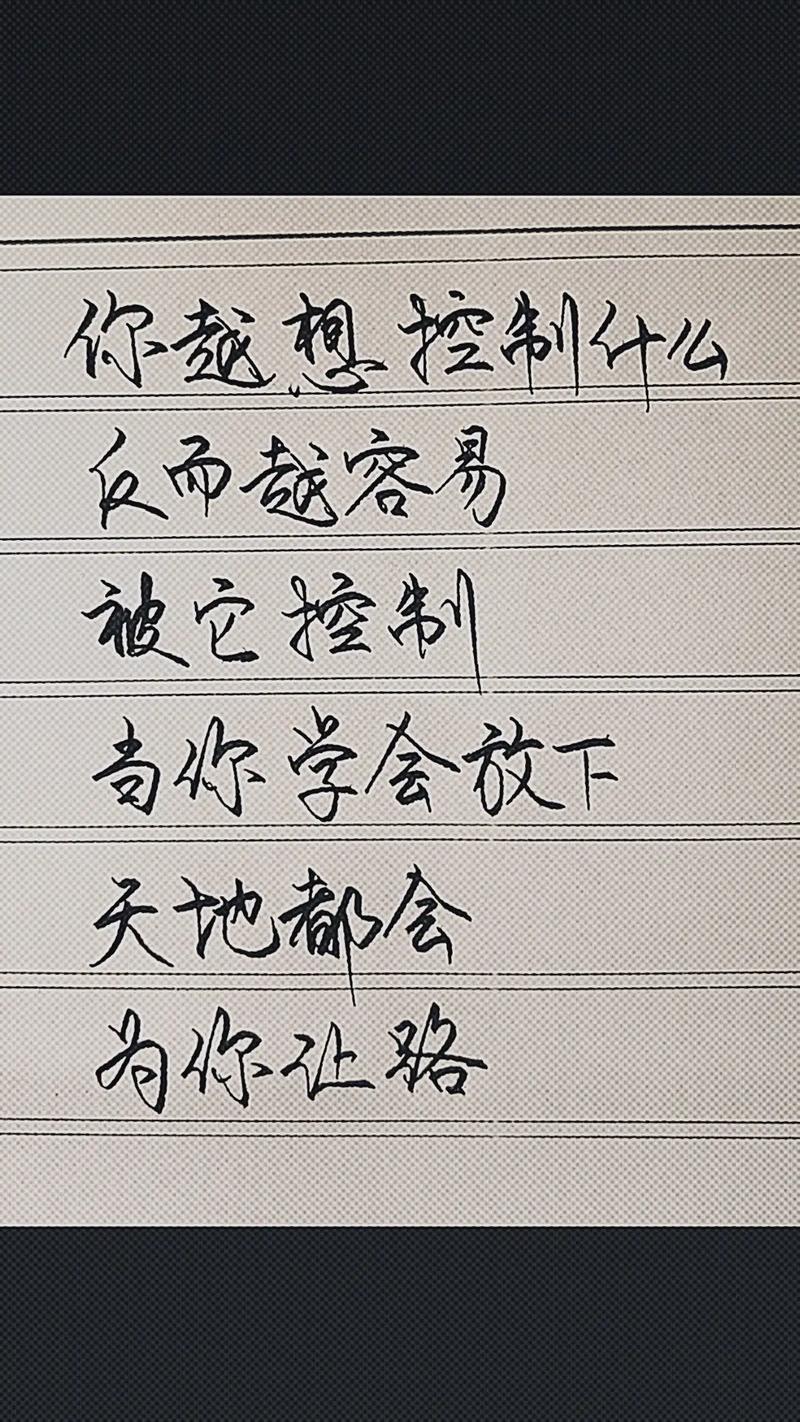 你越想控制什么
反而越容易
被它控制
当你学会放下
天地都会
为你让路